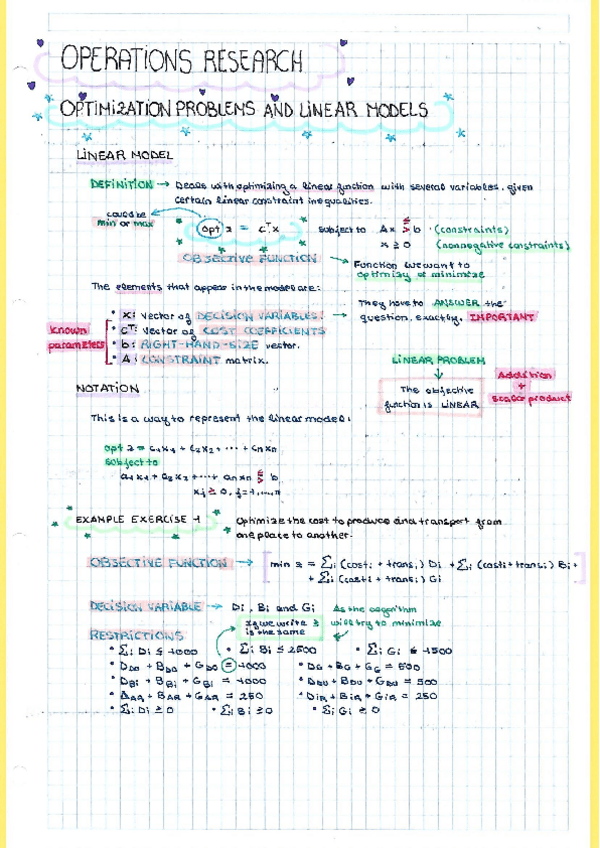 OPERATIONS RESEARCH
OPTIMIZATION PROBLEMS AND LINEAR MODELS
LINEAR MODEL
DEFINITION → Deals with optimizing a linear function with several variables, given
certain linear constraint inequalities.
could be
min or max
opt z = cᵀx subject to Ax ≤≥ b (constraints)
x ≥ 0 (nonnegative constraints)
OBJECTIVE FUNCTION → Function we want to
optimize or minimize
The elements that appear in the model are:
• x: vector of DECISION VARIABLES. → They have to ANSWER the
question, exactly. IMPORTANT
known
parameters
• cᵀ: vector of COST COEFFICIENTS
• b: RIGHT-HAND-SIZE vector.
• A: CONSTRAINT matrix.
LINEAR PROBLEM
↓
The objective
function is LINEAR
Addition
+
scalar product
NOTATION
This is a way to represent the linear model:
opt z = c₁x₁ + c₂x₂ + ... + cnxn
subject to
a₁x₁ + a₂x₂ + ... + anxn ≤≥ b
xj ≥ 0, j=1,...,n
EXAMPLE EXERCISE 1
Optimize the cost to produce and transport from
one place to another.
OBJECTIVE FUNCTION → [min z = Σi (costi + transi) Di + Σi (costi + transi) Bi +
+ Σi (costi + transi) Gi
DECISION VARIABLE → Di, Bi and Gi
As the algorithm
will try to minimize
is the same
RESTRICTIONS
• Σi Di ≤ 1000 • Σi Bi ≤ 2500 • Σi Gi ≤ 1500
= 1000 = 500
• DBi + BBi + GBi = 1000 = 500
+ BAR + GAR = 250 • DiR + BiR + GiR = 250
• Σi Di ≥ 0 • Σi Bi ≥ 0 • Σi Gi ≥ 0